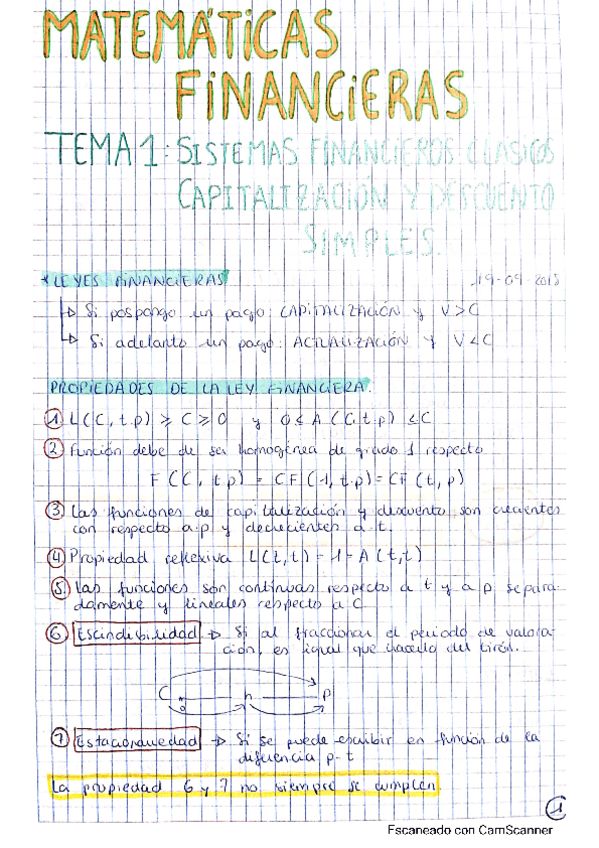 MATEMÁTICAS
FINANCIERAS
TEMA 1: SISTEMAS FINANCIEROS CLASICOS
CAPITALIZACIÓN Y DESCUENTO
SIMPLES.
* LEYES FINANCIERAS 19-09-2018
↳ Si pospongo un pago: CAPITALIZACIÓN y V>C
↳ Si adelanto un pago: ACTUALIZACIÓN y V<C
PROPIEDADES DE LA LEY FINANCIERA.
① L(C, t.p) ≥ C ≥ 0 y 0 ≤ A (C,t.p) ≤ C
② Función debe de ser homogénea de grado 1 respecto
F(C, t.p) = CF(1, t.p) = CF(t, p)
③ Las funciones de capitalización y descuento son crecientes
con respecto a p y decrecientes a t.
④ Propiedad reflexiva L(t,t) = 1 = A(t,t)
⑤ Las funciones son continuas respecto a t y a p separa-
damente y lineales respecto a C
⑥ Escindibilidad → Si al fraccionar el periodo de valora-
ción, es igual que hacerlo del tirón.
C n p
⑦ Estacionariedad → Si se puede escribir en función de la
diferencia p-t
La propiedad 6 y 7 no siempre se cumplen
1
Escaneado con CamScanner